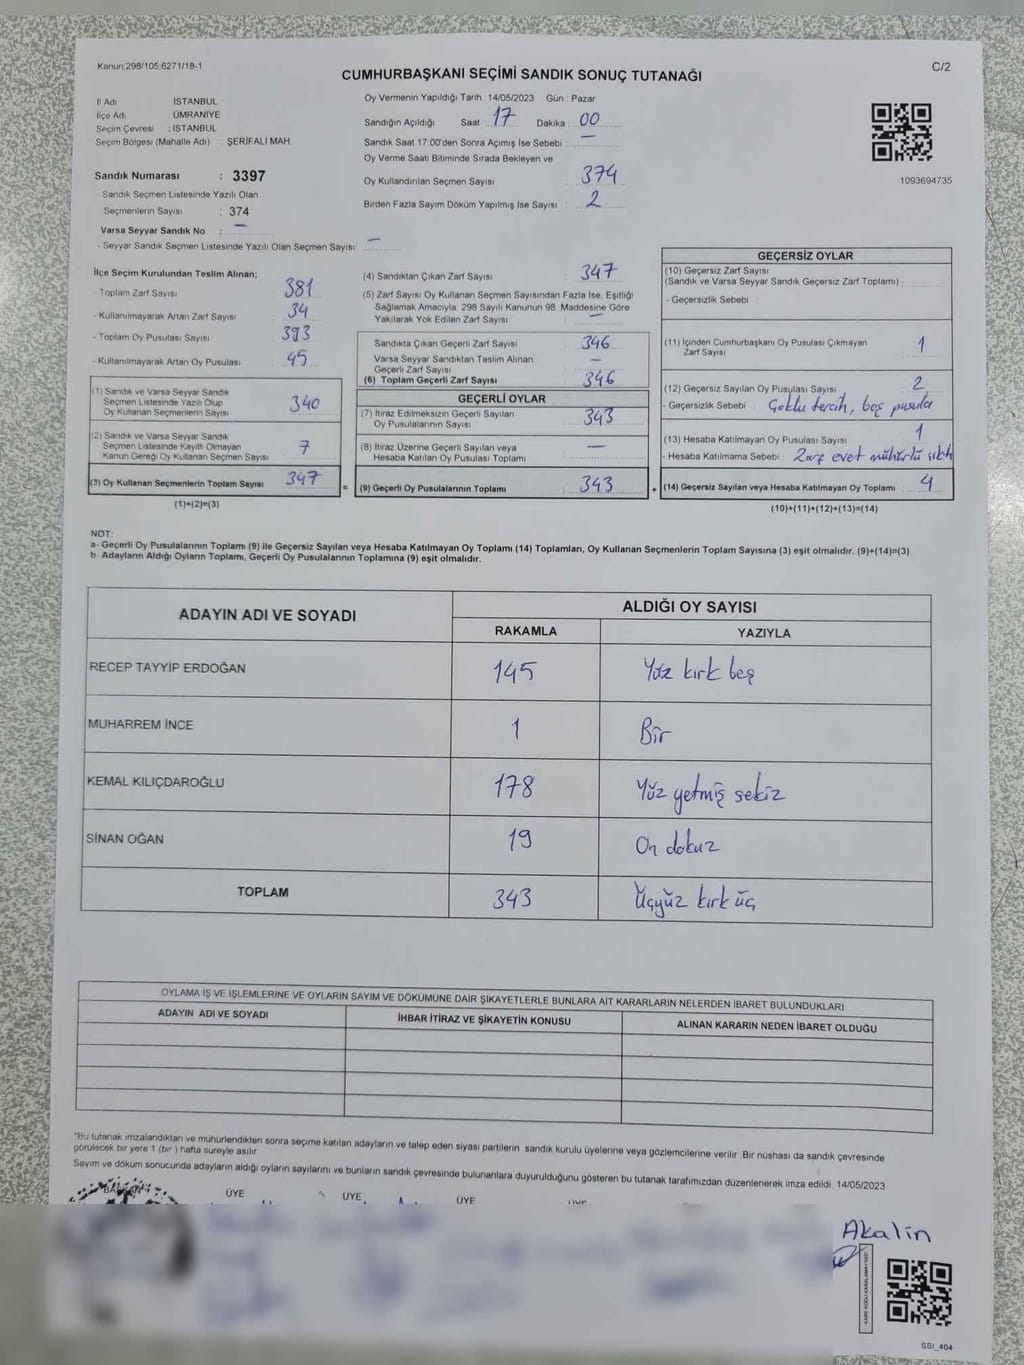 Kanun:298/105;6271/18-1
C/2
CUMHURBAŞKANI SEÇİMİ SANDIK SONUÇ TUTANAĞI
İl Adı İSTANBUL
İlçe Adı : ÜMRANİYE
Seçim Çevresi : İSTANBUL
Seçim Bölgesi (Mahalle Adı) : ŞERİFALİ MAH.
Sandık Numarası : 3397
- Sandık Seçmen Listesinde Yazılı Olan
Seçmenlerin Sayısı : 374
Varsa Seyyar Sandık No : —
- Seyyar Sandık Seçmen Listesinde Yazılı Olan Seçmen Sayısı: —
Oy Vermenin Yapıldığı Tarih :14/05/2023 Gün : Pazar
Sandığın Açıldığı Saat : 17 Dakika : 00
Sandık Saat 17:00'den Sonra Açımış İse Sebebi : —
Oy Verme Saati Bitiminde Sırada Bekleyen ve
Oy Kullandırılan Seçmen Sayısı : 374
Birden Fazla Sayım Döküm Yapılmış İse Sayısı : 2
1093694735
İlçe Seçim Kurulundan Teslim Alınan;
- Toplam Zarf Sayısı 381
- Kullanılmayarak Artan Zarf Sayısı 34
- Toplam Oy Pusulası Sayısı 393
- Kullanılmayarak Artan Oy Pusulası 45
(1) Sandık ve Varsa Seyyar Sandık
Seçmen Listesinde Yazılı Olup
Oy Kullanan Seçmenlerin Sayısı 340
(2) Sandık ve Varsa Seyyar Sandık
Seçmen Listesinde Kayıtlı Olmayan
Kanun Gereği Oy Kullanan Seçmen Sayısı 7
(3) Oy Kullanan Seçmenlerin Toplam Sayısı 347 =
(1)+(2)=(3)
(4) Sandıktan Çıkan Zarf Sayısı : 347
(5) Zarf Sayısı Oy Kullanan Seçmen Sayısından Fazla İse, Eşitliği
Sağlamak Amacıyla; 298 Sayılı Kanunun 98. Maddesine Göre
Yakılarak Yok Edilen Zarf Sayısı : —
Sandıkta Çıkan Geçerli Zarf Sayısı : 346
Varsa Seyyar Sandıktan Teslim Alınan
Geçerli Zarf Sayısı : —
(6) Toplam Geçerli Zarf Sayısı : 346
GEÇERLİ OYLAR
(7) İtiraz Edilmeksizin Geçerli Sayılan
Oy Pusulalarının Sayısı : 343
(8) İtiraz Üzerine Geçerli Sayılan veya
Hesaba Katılan Oy Pusulası Toplamı : —
(9) Geçerli Oy Pusulalarının Toplamı : 343 +
GEÇERSİZ OYLAR
(10) Geçersiz Zarf Sayısı
(Sandık ve Varsa Seyyar Sandık Geçersiz Zarf Toplamı) :
- Geçersizlik Sebebi :
(11) İçinden Cumhurbaşkanı Oy Pusulası Çıkmayan
Zarf Sayısı : 1
(12) Geçersiz Sayılan Oy Pusulası Sayısı : 2
- Geçersizlik Sebebi : Çoklu tercih, boş pusula
(13) Hesaba Katılmayan Oy Pusulası Sayısı : 1
- Hesaba Katılmama Sebebi : Zarf evet mühürlü
(14) Geçersiz Sayılan veya Hesaba Katılmayan Oy Toplamı : 4
(10)+(11)+(12)+(13)=(14)
NOT:
a- Geçerli Oy Pusulalarının Toplamı (9) ile Geçersiz Sayılan veya Hesaba Katılmayan Oy Toplamı (14) Toplamları, Oy Kullanan Seçmenlerin Toplam Sayısına (3) eşit olmalıdır. (9)+(14)=(3)
b- Adayların Aldığı Oyların Toplamı, Geçerli Oy Pusulalarının Toplamına (9) eşit olmalıdır.
ADAYIN ADI VE SOYADI ALDIĞI OY SAYISI
RAKAMLA YAZIYLA
RECEP TAYYİP ERDOĞAN 145 Yüz kırk beş
MUHARREM İNCE 1 Bir
KEMAL KILIÇDAROĞLU 178 Yüz yetmiş sekiz
SİNAN OĞAN 19 On dokuz
TOPLAM 343 Üçyüz kırk üç
OYLAMA İŞ VE İŞLEMLERİNE VE OYLARIN SAYIM VE DÖKÜMÜNE DAİR ŞİKAYETLERLE BUNLARA AİT KARARLARIN NELERDEN İBARET BULUNDUKLARI
ADAYIN ADI VE SOYADI İHBAR İTİRAZ VE ŞİKAYETİN KONUSU ALINAN KARARIN NEDEN İBARET OLDUĞU
"Bu tutanak imzalandıktan ve mühürlendikten sonra seçime katılan adayların ve talep eden siyasi partilerin sandık kurulu üyelerine veya gözlemcilerine verilir .Bir nüshası da sandık çevresinde
görülecek bir yere 1 (bir ) hafta süreyle asılır.
Sayım ve döküm sonucunda adayların aldığı oyların sayılarını ve bunların sandık çevresinde bulunanlara duyurulduğunu gösteren bu tutanak tarafımızdan düzenlenerek imza edildi. 14/05/2023
ÜYE ÜYE ÜYE
Akalın
SSI_404